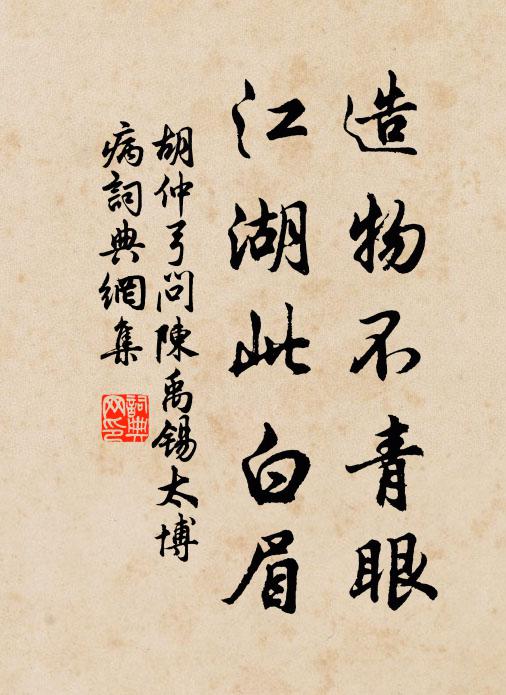 造物不青眼
江湖此白眉
胡仲弓問陳禹錫太博
病詞典網集
詞典
网印